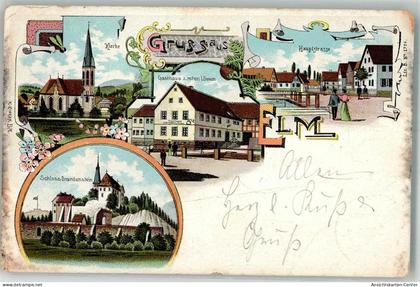 Kirche
Gruss aus
Hauptstrasse
Gasthaus z. roten Löwen
ELM
Schloss Brandenstein
Allen
Herzl. Gruß &
Kuß
www.ansichtskarten-center.de